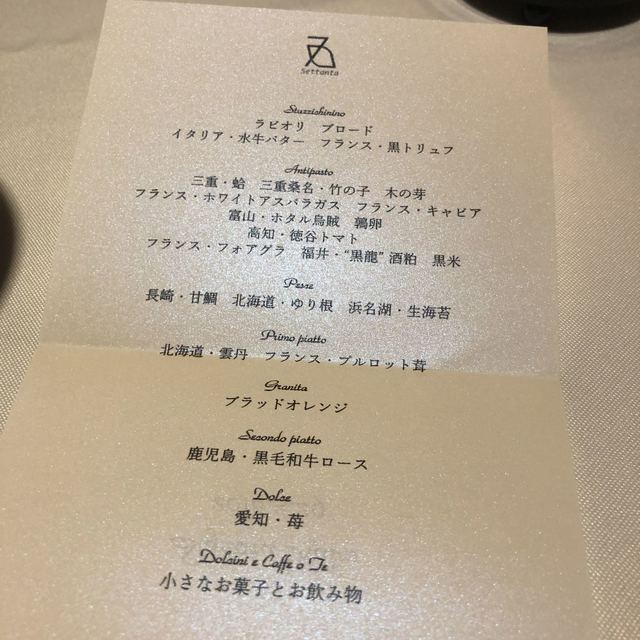 Settanta
Stuzzichinino
ラビオリ　ブロード
イタリア・水牛バター　フランス・黒トリュフ
Antipasto
三重・蛤　三重桑名・竹の子　木の芽
フランス・ホワイトアスパラガス　フランス・キャビア
富山・ホタル烏賊　鶉卵
高知・徳谷トマト
フランス・フォアグラ　福井・“黒龍” 酒粕　黒米
Pesse
長崎・甘鯛　北海道・ゆり根　浜名湖・生海苔
Primo piatto
北海道・雲丹　フランス・ブルロット茸
Granita
ブラッドオレンジ
Secondo piatto
鹿児島・黒毛和牛ロース
Dolse
愛知・苺
Dolcini e Caffe o Te
小さなお菓子とお飲み物